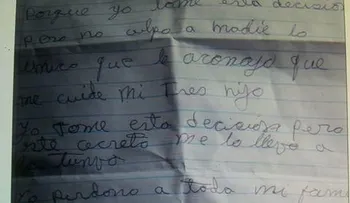 Porque yo tome esta decisio
pero no culpo a nadie lo
unico que le aconajo que
me cuide mi tres hijo
Yo tome esta decicion pero
este cecreto me lo llevo a
tunva
Le perdono a toda mi fami